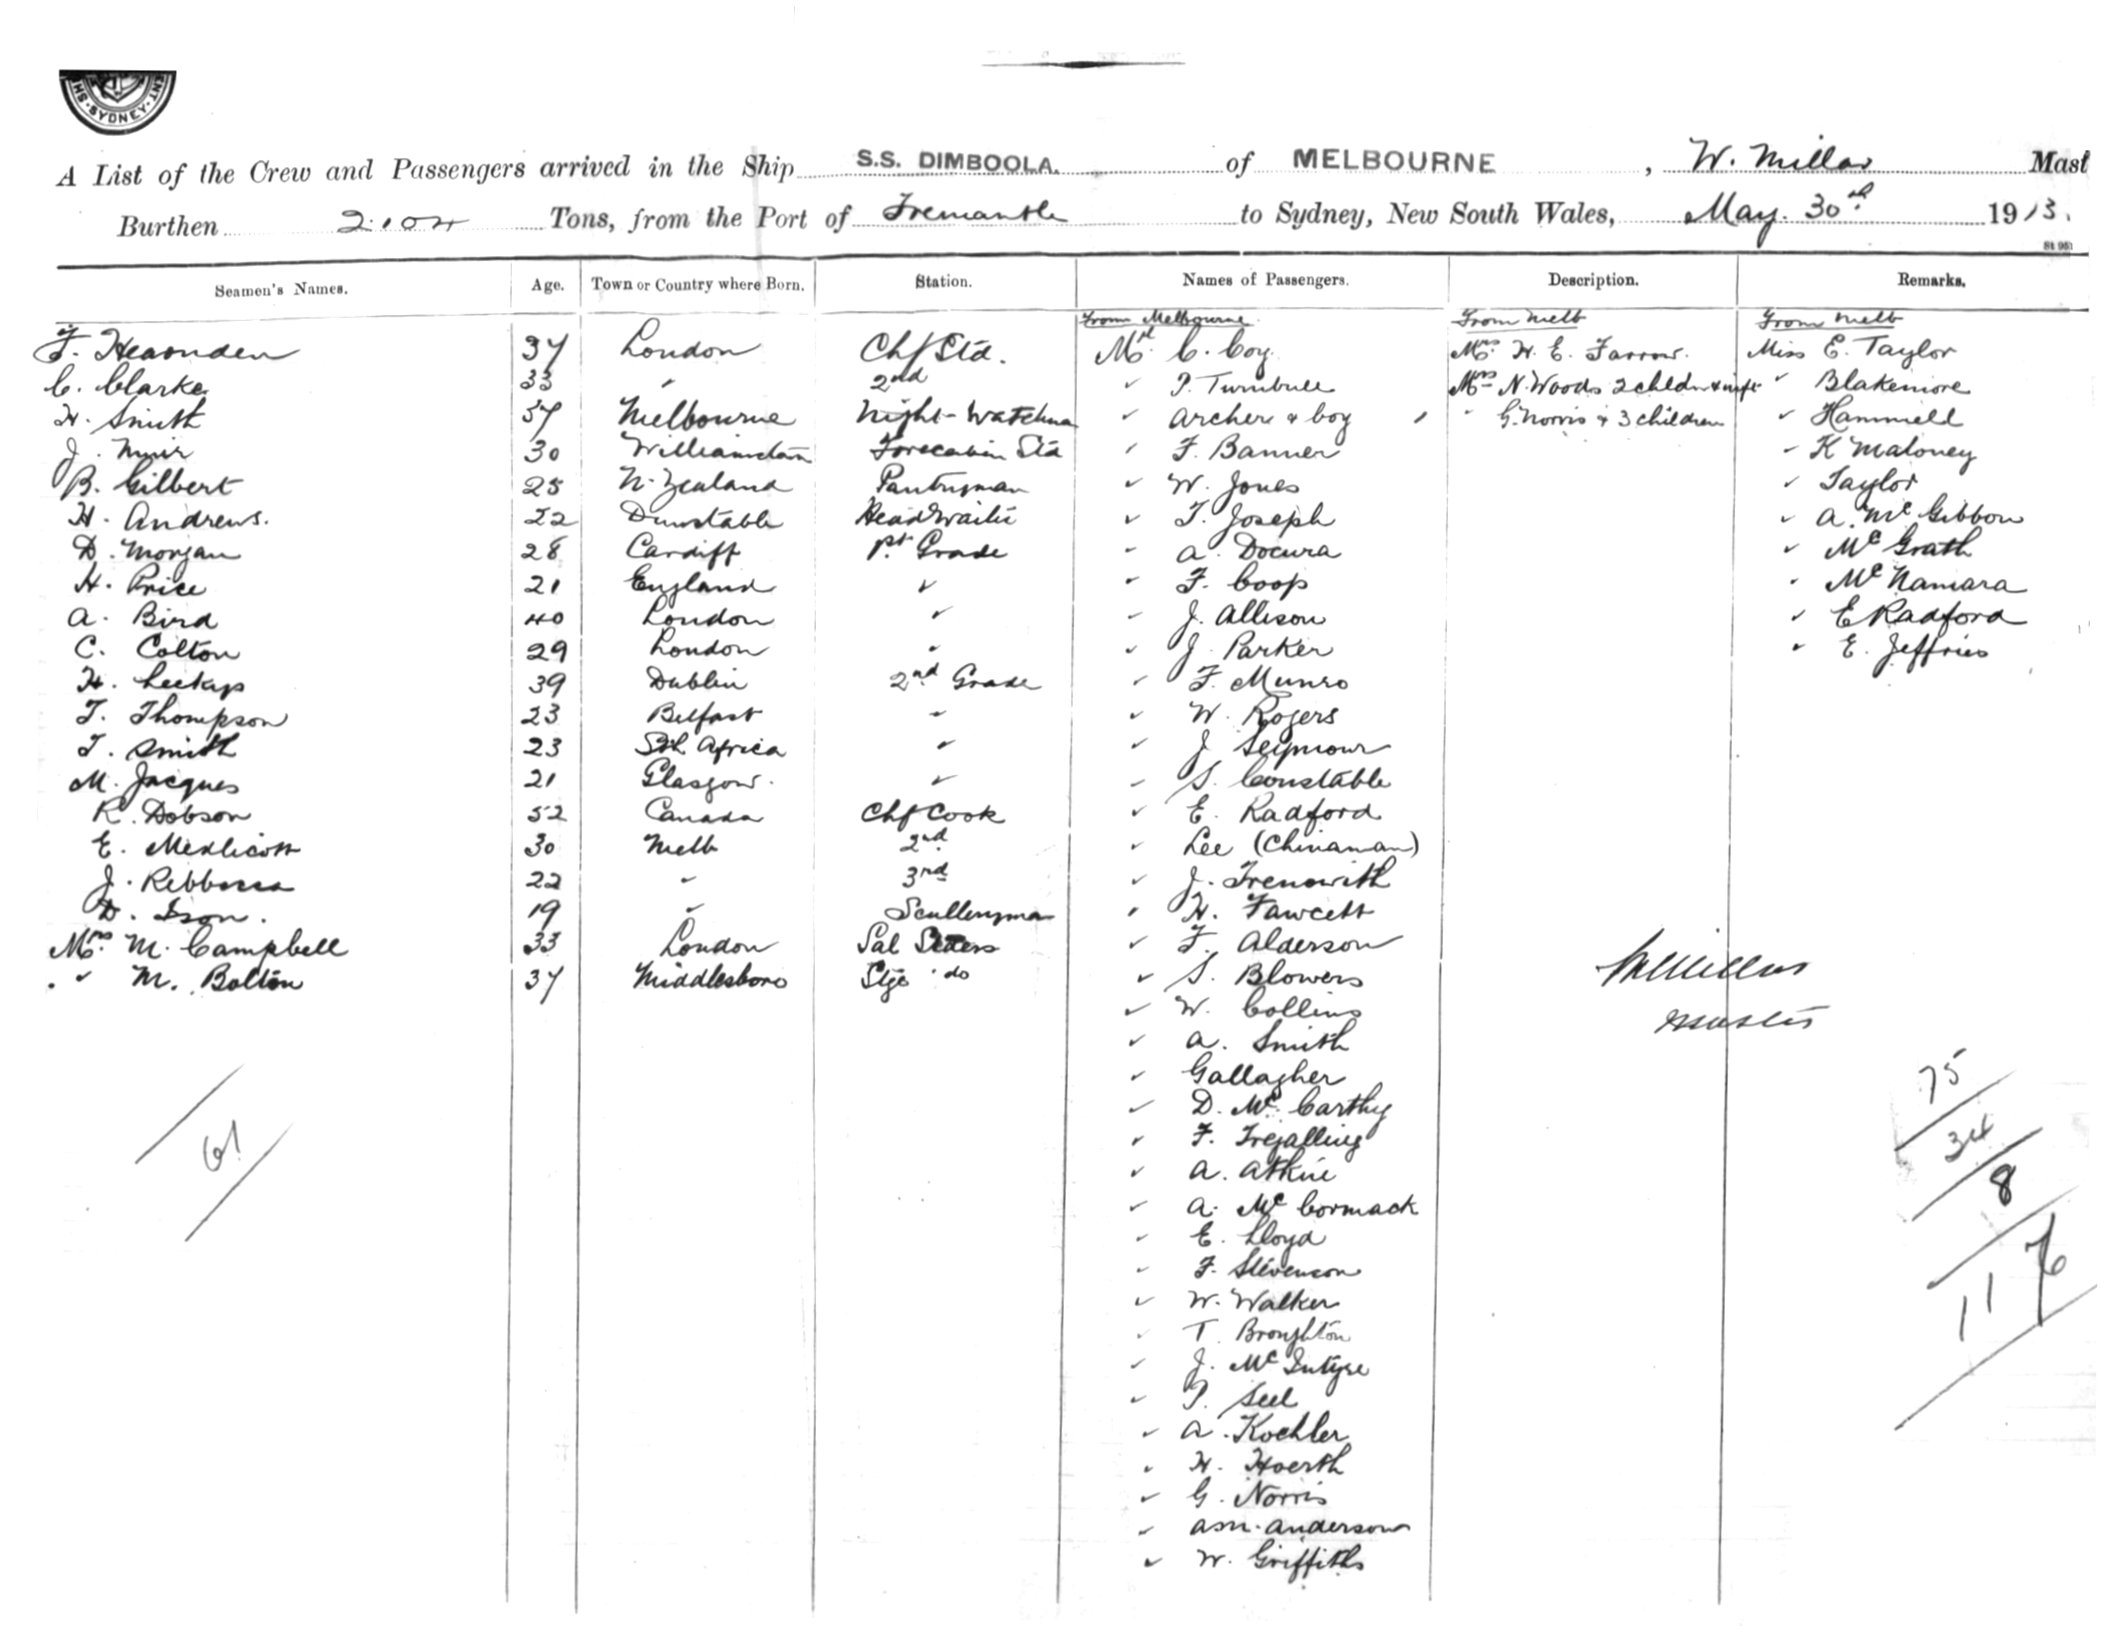 SYDNEY
A List of the Crew and Passengers arrived in the Ship S.S. DIMBOOLA. of MELBOURNE, W. Millar Mast
Burthen 2104 Tons, from the Port of Fremantle to Sydney, New South Wales, May. 30th 1913.
St 951
Seamen's Names. Age. Town or Country where Born. Station. Names of Passengers. Description. Remarks.
From Melbourne From Melb From Melb
F. Hearnden 37 London Chf Std. Mr. C. Coy. Mrs. H. E. Farrow. Miss E. Taylor
C. Clarke 33 " 2nd " P. Turnbull Mrs N. Woods 2 children & inft " Blakemore
H. Smith 37 Melbourne Night-Watchman " Archer & boy " G. Norris & 3 children " Hammell
J. Muir 30 Williamstown Forecabin Std " F. Banner " K Maloney
B. Gilbert 25 N. Zealand Pantryman " W. Jones " Taylor
H. Andrews. 22 Dunstable Head Waiter " T. Joseph " A. McGibbon
D. Morgan 28 Cardiff 1st Grade " A. Docura " McGrath
H. Price 21 England " " F. Coop " McNamara
A. Bird 40 London " " J. Allison " E Radford
C. Colton 29 London " " J. Parker " E. Jeffries
H. 39 Dublin 2nd Grade " F. Munro
T. Thompson 23 Belfast " " W. Rogers
T. Smith 23 Sth Africa " " J Seymour
M. Jacques 21 Glasgow. " " S. Constable
R. Dobson 52 Canada Chf Cook " E. Radford
E. Medlicott 30 Melb 2nd " Lee (Chinaman)
J. 22 " 3rd " J. Trenowith
D. Ison. 19 " Sculleryman " H. Fawcett
Mrs. M. Campbell 33 London Sal " F. Alderson
" M. Bolton 37 Middlesboro Stge do " S. Blowers
" W. Collins
" A. Smith
" Gallagher
" D. McCarthy
" F. Tregalling
" A. Atkin
" A. McCormack
" E. Lloyd
" F. Stevenson
" W. Walker
" T. Broughton
" J. McIntyre
" P. Seel
" A. Koehler
" H. Hoerth
" G. Norris
" A.M. Anderson
" W. Griffiths
W Millar
Master
61
75
34
8
117